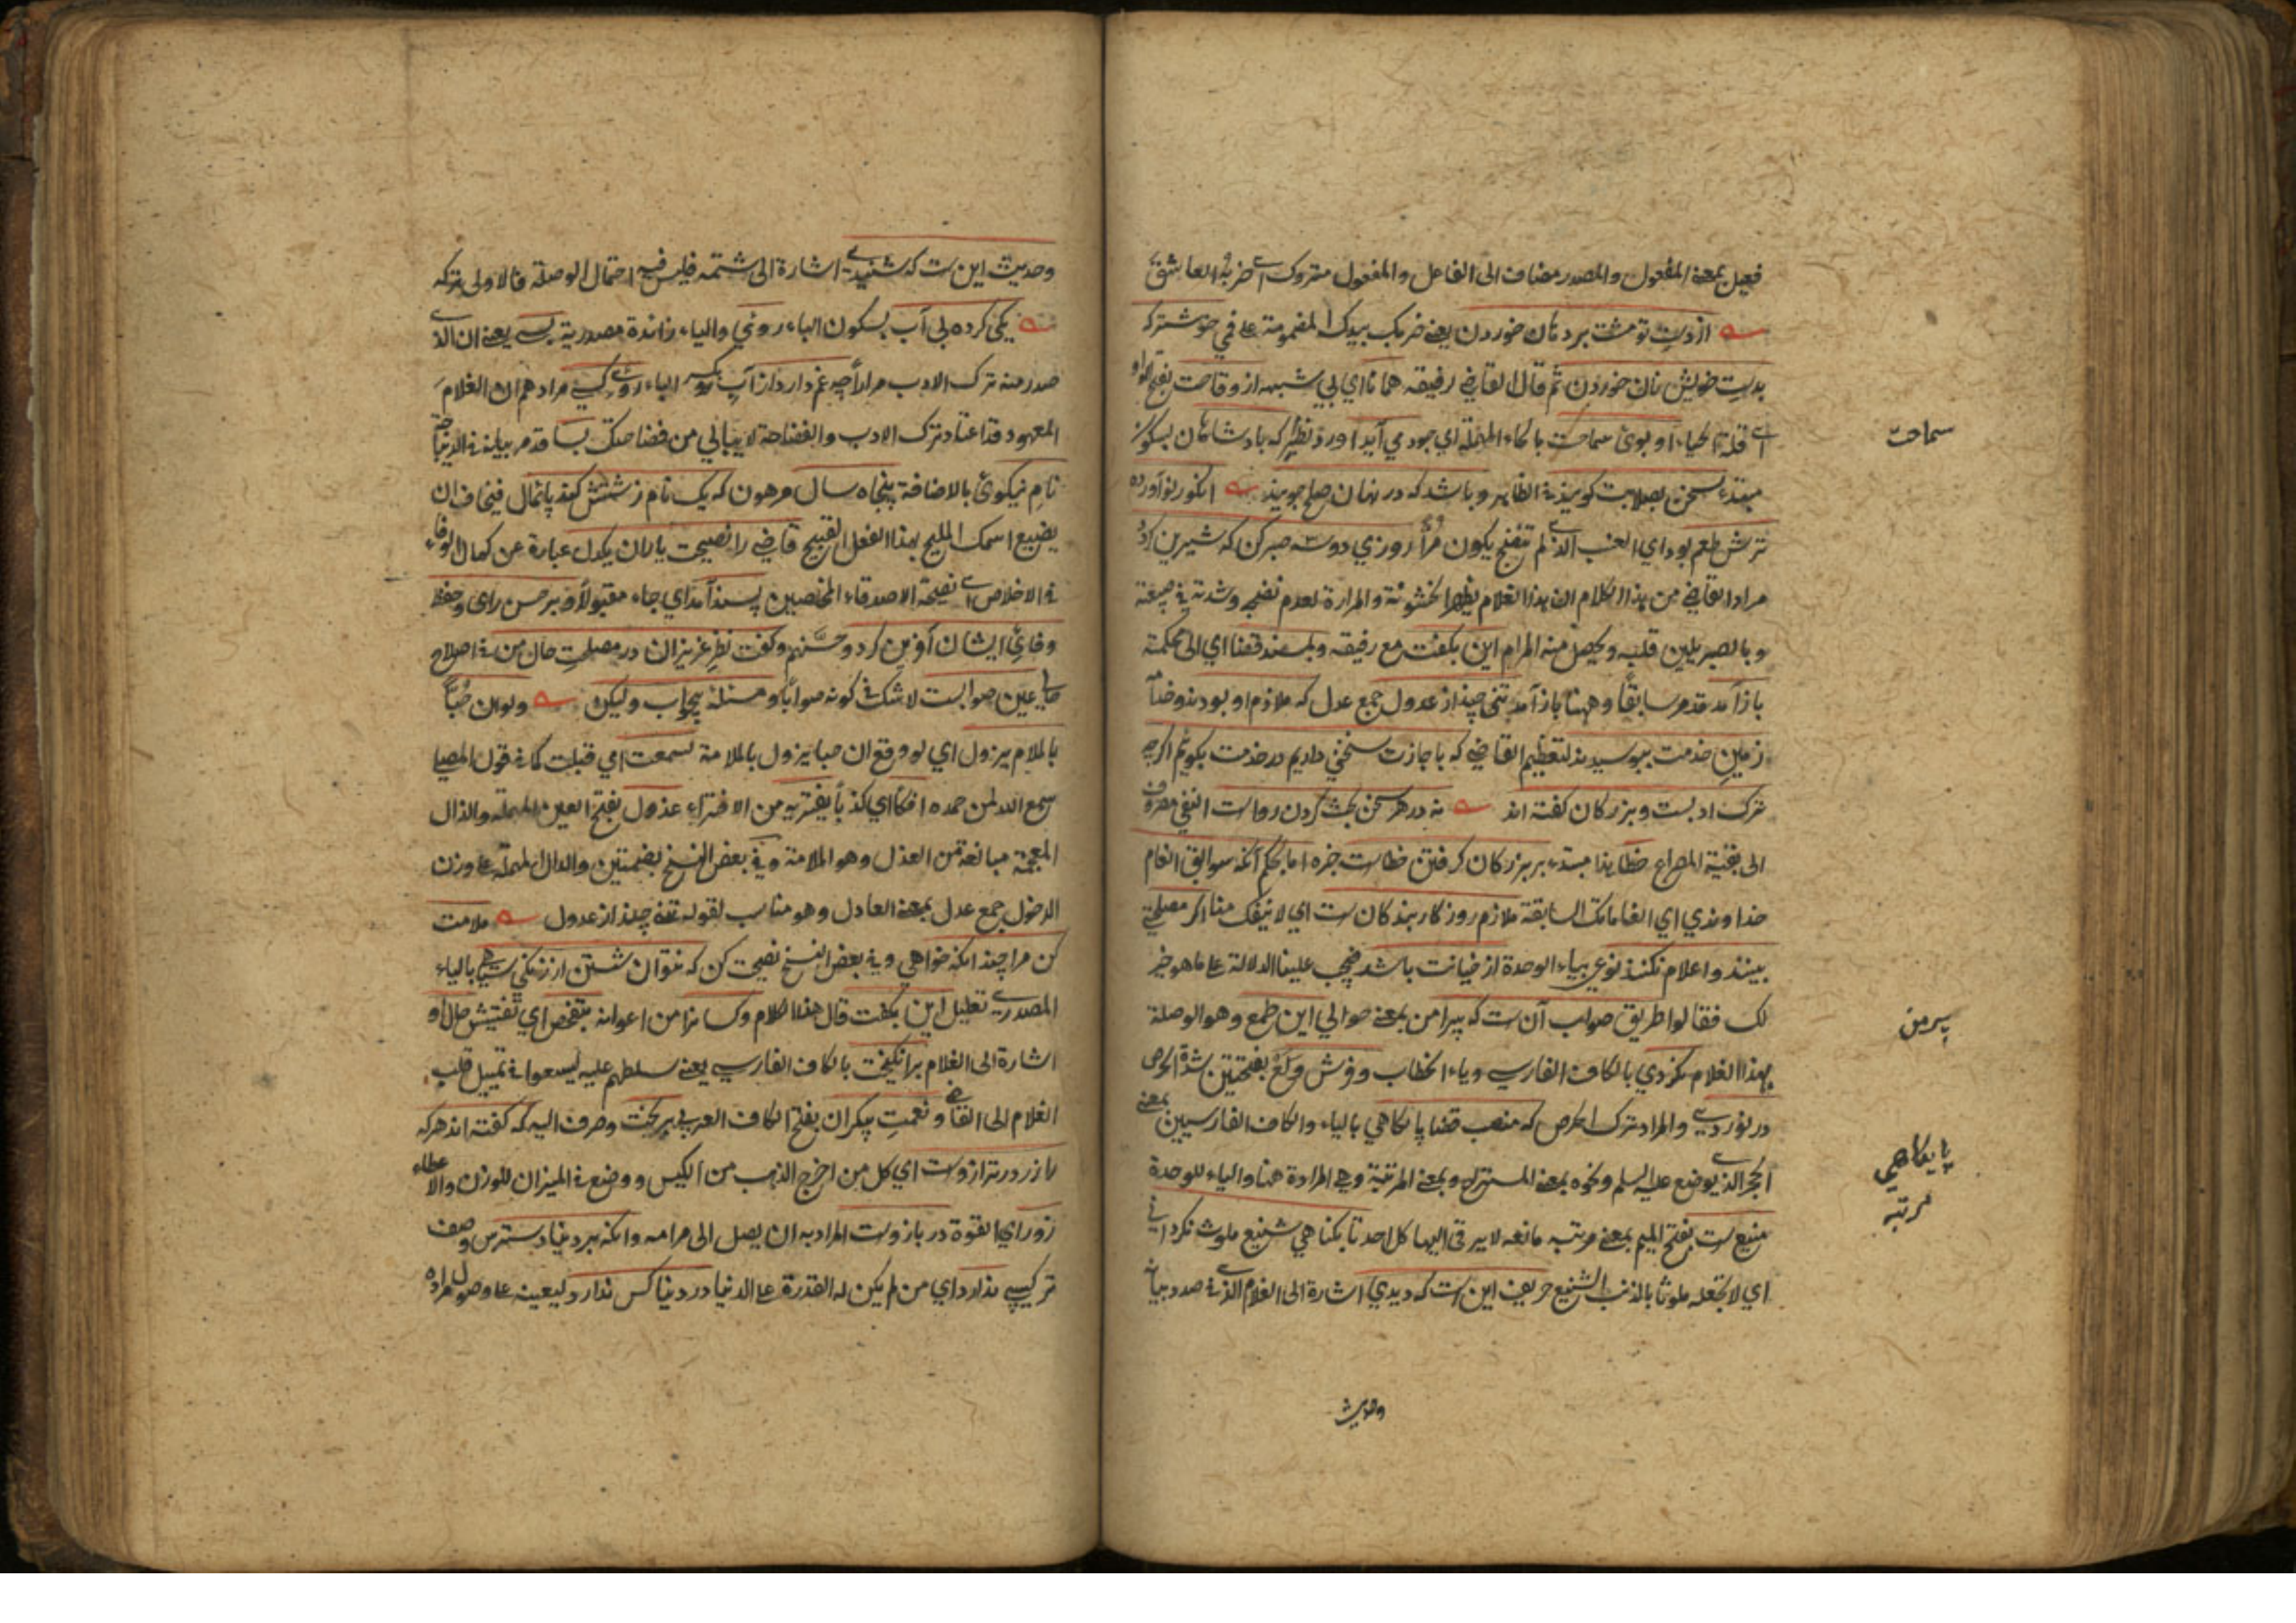 فعيل بمعنى المفعول والمصدر مضاف الى الفاعل والمفعول متروك اي ضربه العاشق
از دست تو مشت بر دهان خوردن يعني ضربك بيدك المضمومة على فمي خوشترکه
بدست خويش نان خوردن ثم قال القاضي لرفيقه همانا اي بي شبهه از وقاحت بفتح الواو
اي قلة الحياء او بوى سماحت بالحاء المهملة اي جود مي آيد اورد نظير که بادشاهان
مبتدء سخن بصلابت کويند في الظاهر وباشد که در نهان صلح جويند انکور نوآورده
ترش طعم بود اي العنب الذي لم تنضج يكون مرا روزي دوسه صبر کن که شيرين کردد
مراد القاضي من هذا الكلام ان هذا الغلام يظهر الخشونة والمرارة لعدم نضجه وشدته في
وبالصبر يلين قلبه ويحصل منه المرام اين بکفت مع رفيقه وبمسند قضا اي الى محكمته
باز آمد قدم سابقا وههنا باز آمد تني چند از عدول جمع عدل که ملازم او بودند
زمين خدمت ببوسيدند لتعظيم القاضي که باجازت سخني داريم در خدمت بکويم اکرچه
ترک ادبست وبزرکان کفته اند نه در هر سخن بحث کردن رواست النفي مصروف
الى بقية المصراع خطا هذا مبتدء بر بزرکان کرفتن خطاست خبره اما بحکم آنکه سوابق انعام
خداوندي اي انعاماتك السابقة ملازم روزکار بندکان ست اي لا ينفك منا اکر مصلحتي
بينند واعلام نکنند نوعي بياء الوحدة از خيانت باشد فيجب علينا الدلالة على ما هو خير
لك فقالوا طريق صواب آن ست که پيرامن بمعنى حوالي اين طمع وهو الوصلة
بهذا الغلام نکردي بالكاف الفارسي وياء الخطاب وفرش ولع بفتحتين شدة الحرص
در نوردي والمراد ترك الحرص که منصب قضا پايکاهي بالياء والكاف الفارسيين بمعنى
الحجر الذي يوضع عليه السلم ونحوه بمعنى المنزلة وبمعنى المرتبة وهي المرادة هنا والياء للوحدة
منيع ست بفتح الميم بمعنى مرتبه مانعه لا يرقى اليها كل احد تا بکناهي شنيع ملوث نکرداني
اي لا تجعله ملوثا بالذنب الشنيع حريف اين ست که ديدي اشارة الى الغلام الذي في صدد بيانه
وحديث
سماحت
پيرامن
پايکاهي
مرتبه
وحديث اين ست که شنيدي اشارة الى شتمه فليس فيه احتمال الوصلة فالاولى تركه
يکي کرده بي آب بسكون الباء روئي والياء زائدة مصدرية بسي يعني ان الذي
صدر منه ترك الادب مرارا چه غم دارد از آب بكسر الباء روي کسي مرادهم ان الغلام
المعهود قد اعتاد ترك الادب والفضاحة لا يبالي من فضاحتك بسا قدم بيانه في الديباجة
نام نيکوئ بالاضافة پنجاه سال مرهون که يک نام زشتش کند پايمال فيخاف ان
يضيع اسمك المليح بهذا الفعل القبيح قاضي را نصيحت ياران يکدل عبارة عن كمال الوفاء
في الاخلاص اي نصيحة الاصدقاء المخلصين پسند آمد اي جاء مقبولا وبر حسن راى وحفظ
وفاى ايشان آفرين کرد وحسنهم وکفت نظر عزيزان در مصلحت حال من في اصلاح
حالي عين صوابست لا شك في كونه صوابا ومسئله بيجواب وليکن ولو ان حبا
بالملام يزول اي لو وقع ان حبا يزول بالملامة لسمعت اي قبلت كما في قول المصلي
سمع الله لمن حمده افكا اي كذبا يفتريه من الافتراء عذول بفتح العين المهملة والذال
المعجمة مبالغة من العذل وهو الملامة وفي بعض النسخ بضمتين والدال المهملة على وزن
الدخول جمع عدل بمعنى العادل وهو مناسب لقوله تني چند از عدول ملامت
کن مرا چندانکه خواهي وفي بعض النسخ نصيحت کن که نتوان شستن از زنکي سياهي بالياء
المصدري تعليل اين بکفت قال هذا الكلام وکسانرا من اعوانه بتفحص اي تفتيش حال او
اشارة الى الغلام برانکيخت بالكاف الفارسي يعني سلطهم عليه ليسعوا في تمييل قلب
الغلام الى القاضي ونعمت بيکران بفتح الكاف العربي بريخت وصرف اليه که کفته اند هرکه
را زر در ترازوست اي كل من اخرج الذهب من الكيس ووضع في الميزان للوزن والاعطاء
زور اي القوة در بازوست المراد به ان يصل الى مرامه وانکه بر دينار دسترس وصف
ترکيبي ندارد اي من لم يكن له القدرة على الدنيا در دنيا کس ندارد ليعينه على وصول مراده